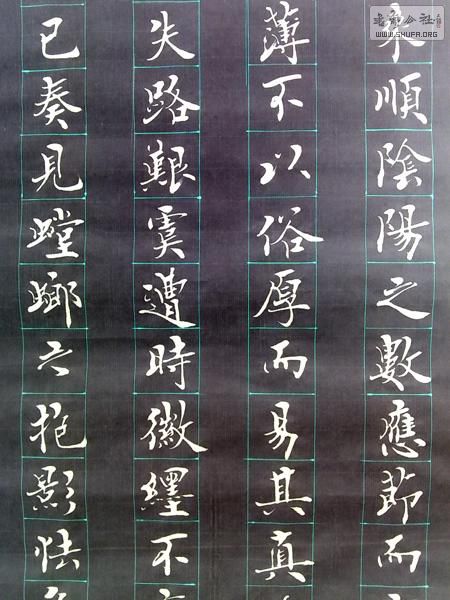 來順陰陽之數應節而
薄不以俗厚而易其真
失路艱虞遭時徽纆不
已奏見螳螂之抱影怯
WWW.SHUFA.ORG